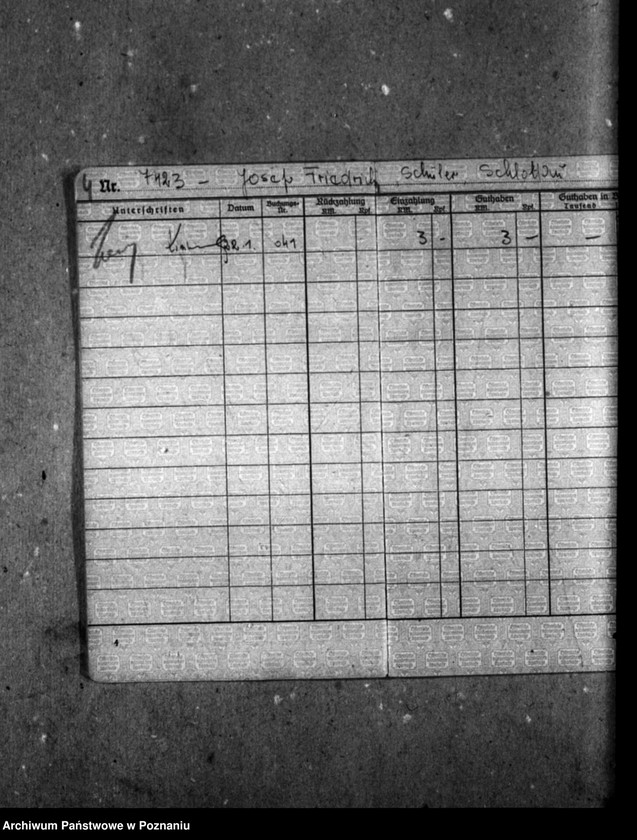 Nr. 7423 - Josef Friedrich Schüler Schlokau
Unterschriften Datum Buchungs-Nr. Rückzahlung RM. Rpf. Einzahlung RM. Rpf. Guthaben RM. Rpf. Guthaben in Tausend
22.1. 3 - 3 - -
1
Archiwum Państwowe w Poznaniu